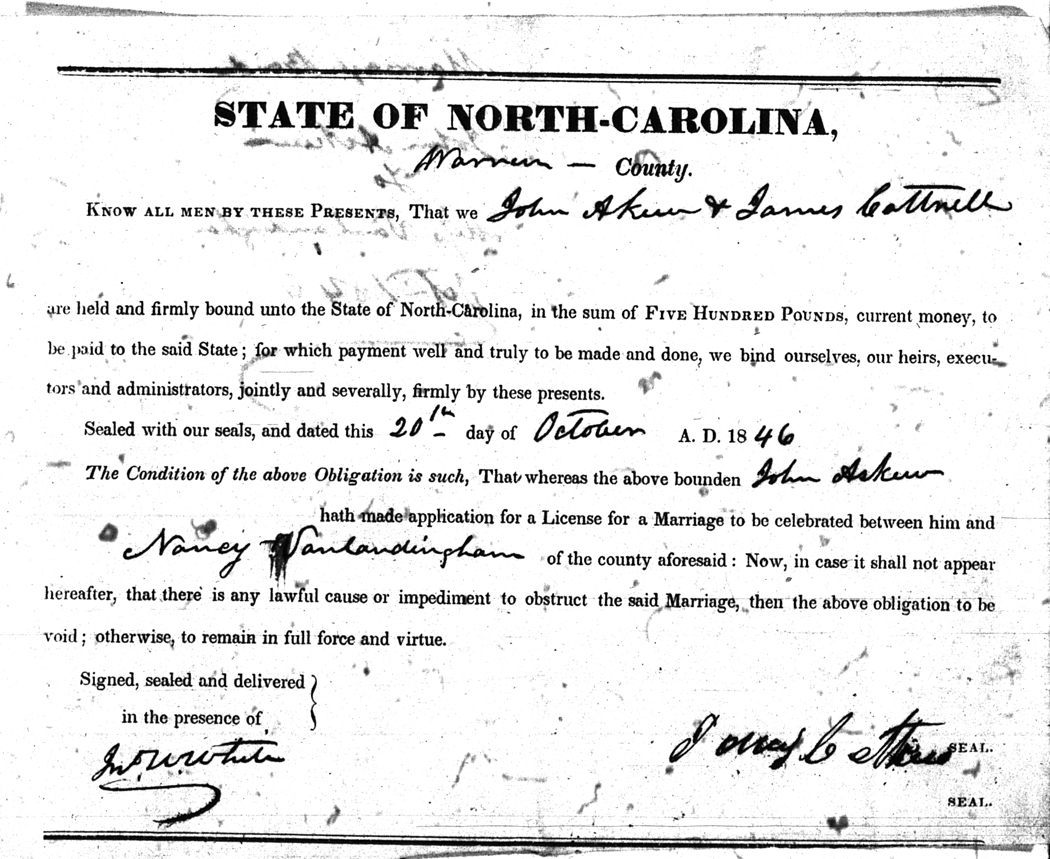 STATE OF NORTH-CAROLINA,
Warren — County.
KNOW ALL MEN BY THESE PRESENTS, That we John Askew & James Cottrell
are held and firmly bound unto the State of North-Carolina, in the sum of FIVE HUNDRED POUNDS, current money, to
be paid to the said State; for which payment well and truly to be made and done, we bind ourselves, our heirs, execu-
tors and administrators, jointly and severally, firmly by these presents.
Sealed with our seals, and dated this 20th day of October A. D. 1846
The Condition of the above Obligation is such, That whereas the above bounden John Askew
hath made application for a License for a Marriage to be celebrated between him and
Nancy Vanlandingham of the county aforesaid: Now, in case it shall not appear
hereafter, that there is any lawful cause or impediment to obstruct the said Marriage, then the above obligation to be
void; otherwise, to remain in full force and virtue.
Signed, sealed and delivered
in the presence of
Jno. W. White
SEAL.
SEAL.